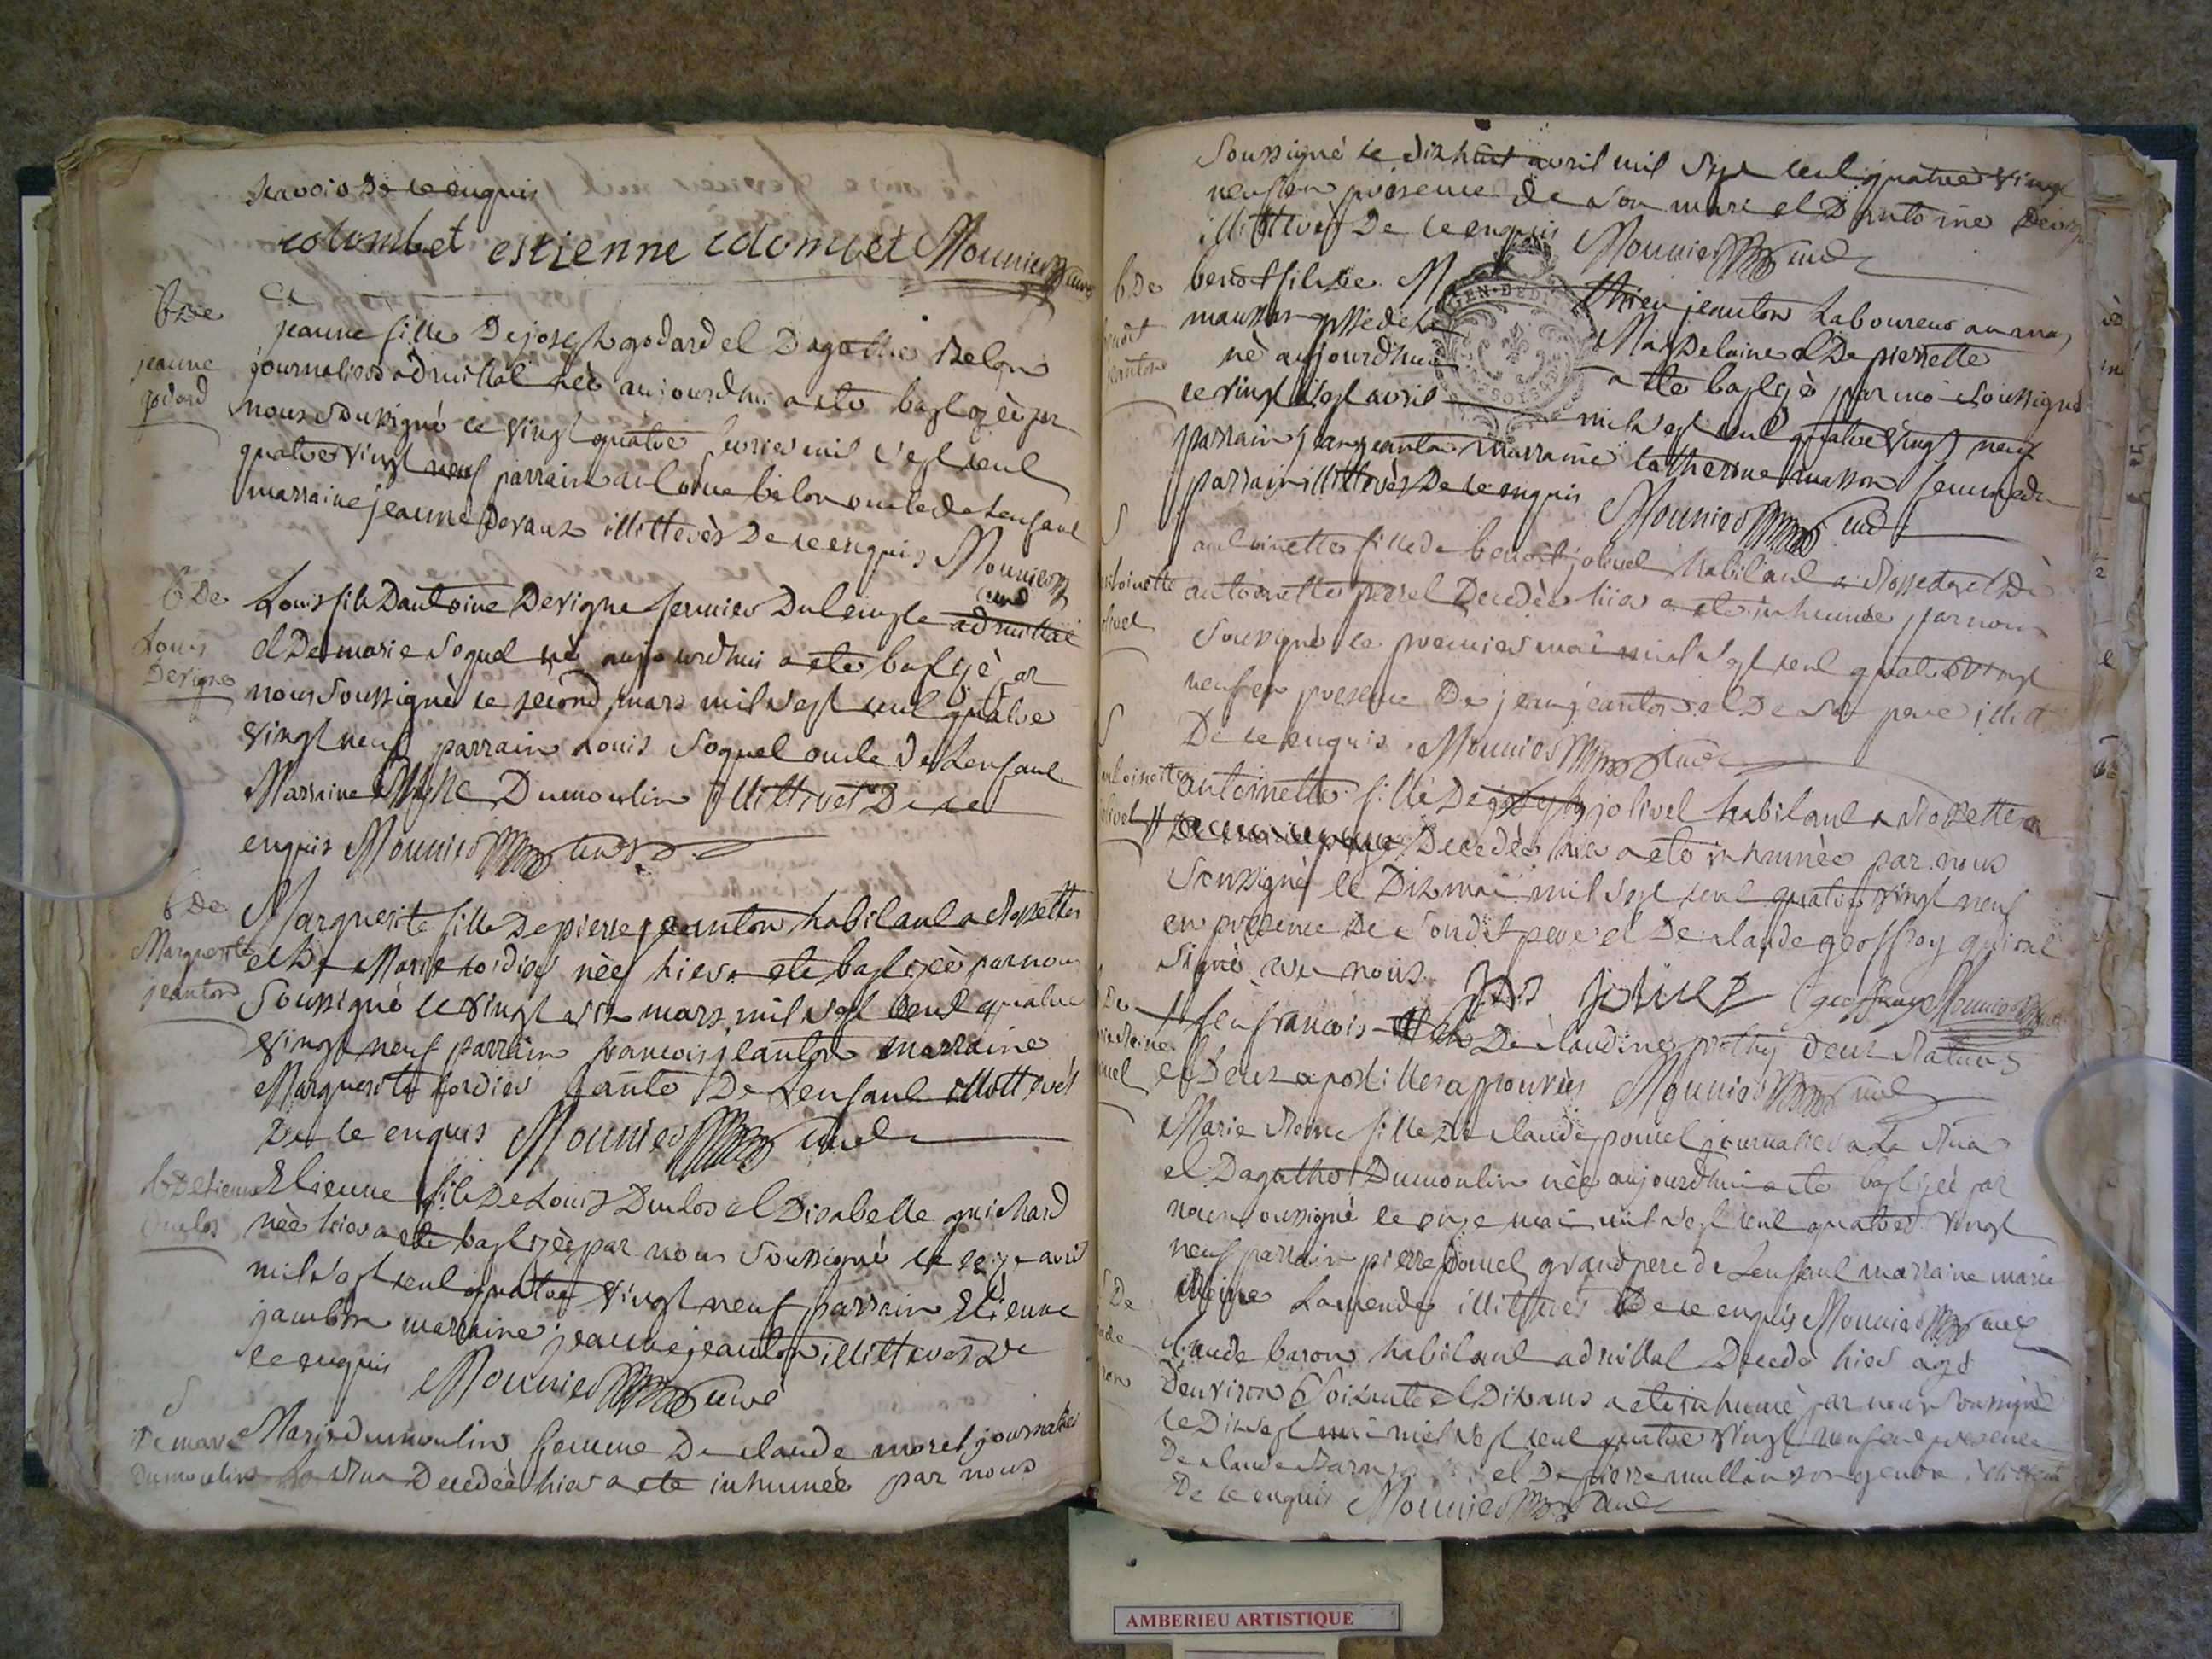 scavois de ce enquis
colombet estienne colombet Mounier curé
b de
jeanne
godard
jeanne fille De joseph godard et Dagathe Belon
journaliers adruillat née aujourdhui a eté baptizée par
nous soussigné ce vingt quatre fevrier mil sept cent
quatre vingt neuf parrain belon oncle de Lenfant
marraine jeanne Devaux illitterés De ce enquis Mounier
curé
b De
Louis
Devigne
Louis fils Dantoine Devigne fermier Du adruillat
et De marie Soquet né aujourdhui a eté baptizé par
nous soussigné le second mars mil sept cent quatre
vingt neuf parrain Louis Soquet oncle de Lenfant
Marraine Dumoulin illitterés De ce
enquis Mounier curé
b de
Marguerite
jeanton
Marguerite fille De pierre jeanton habitant a Rossettes
et De Marie cordier née hier a eté baptizée par nous
Soussigné le vingt six mars mil sept cent quatre
vingt neuf parrain francois jeanton marraine
Marguerite Cordier tante De Lenfant illitterés
De ce enquis Mounier curé
b De etienne
Duclos
Etienne fils De Louis Duclos et Disabelle guichard
née hier a eté baptizé par nous Soussigné le seize avril
mil sept cent quatre vingt neuf parrain Etienne
jambon marraine jeanne jeanton illitterés De
ce enquis Mounier curé
S
De marie
Dumoulin
Marie dumoulin femme De claude morel journalier
La Rua Decedée hier a eté inhumée par nous
Soussigné le dixhuit avril mil sept cent quatre vingt
neuf en presence de son mari et D antoine
illitterés De ce enquis Mounier curé
b De
benoit
jeanton
benoit fils De Mathieu jeanton Laboureur au mas
Magdelaine et De pierrette
né aujourdhui a eté baptizé par moi soussigné
le vingt sept avril mil sept cent quatre vingt neuf
parrain jean jeanton marraine catherine masson femme du
parrain illitterés De ce enquis Mounier curé
S
antoinette
jolivet
antoinette fille de benoit jolivet habitant a Rossettes et De
antoinette Decedée hier a eté inhumée par nous
Soussigné le premier mai mil sept cent quatre vingt
neuf en presence De jean jeanton et De son pere illitt
De ce enquis Mounier curé
S
antoinette
jolivet
antoinette fille De joseph jolivet habitant a Rossettes
Decedée hier a eté inhumée par nous
Soussigné le Dix mai mil sept cent quatre vingt neuf
en presence De Sondit pere et De claude geoffray qui ont
Signé avec nous. geoffray Mounier curé
b De
marie Reine
pomel
feu francois De claudine deux Ratures
et Deux apostilles approuvées Mounier curé
Marie Reine fille De claude pomel journalier a La Rua
et Dagathe Dumoulin née aujourdhui a eté baptizée par
nous soussigné le onze mai mil sept cent quatre vingt
neuf parrain pierre pomel grand pere de Lenfant marraine marie
Reine illitterés De ce enquis Mounier curé
S De
claude
baron
Claude baron habitant adruillat Decedé hier agé
denviron Soixante et Dix ans a eté inhumé par nous soussigné
le Dixsept mai mil sept cent quatre vingt neuf en presence
De claude baron et De pierre son gendre illitterés
De ce enquis Mounier curé
AMBERIEU ARTISTIQUE